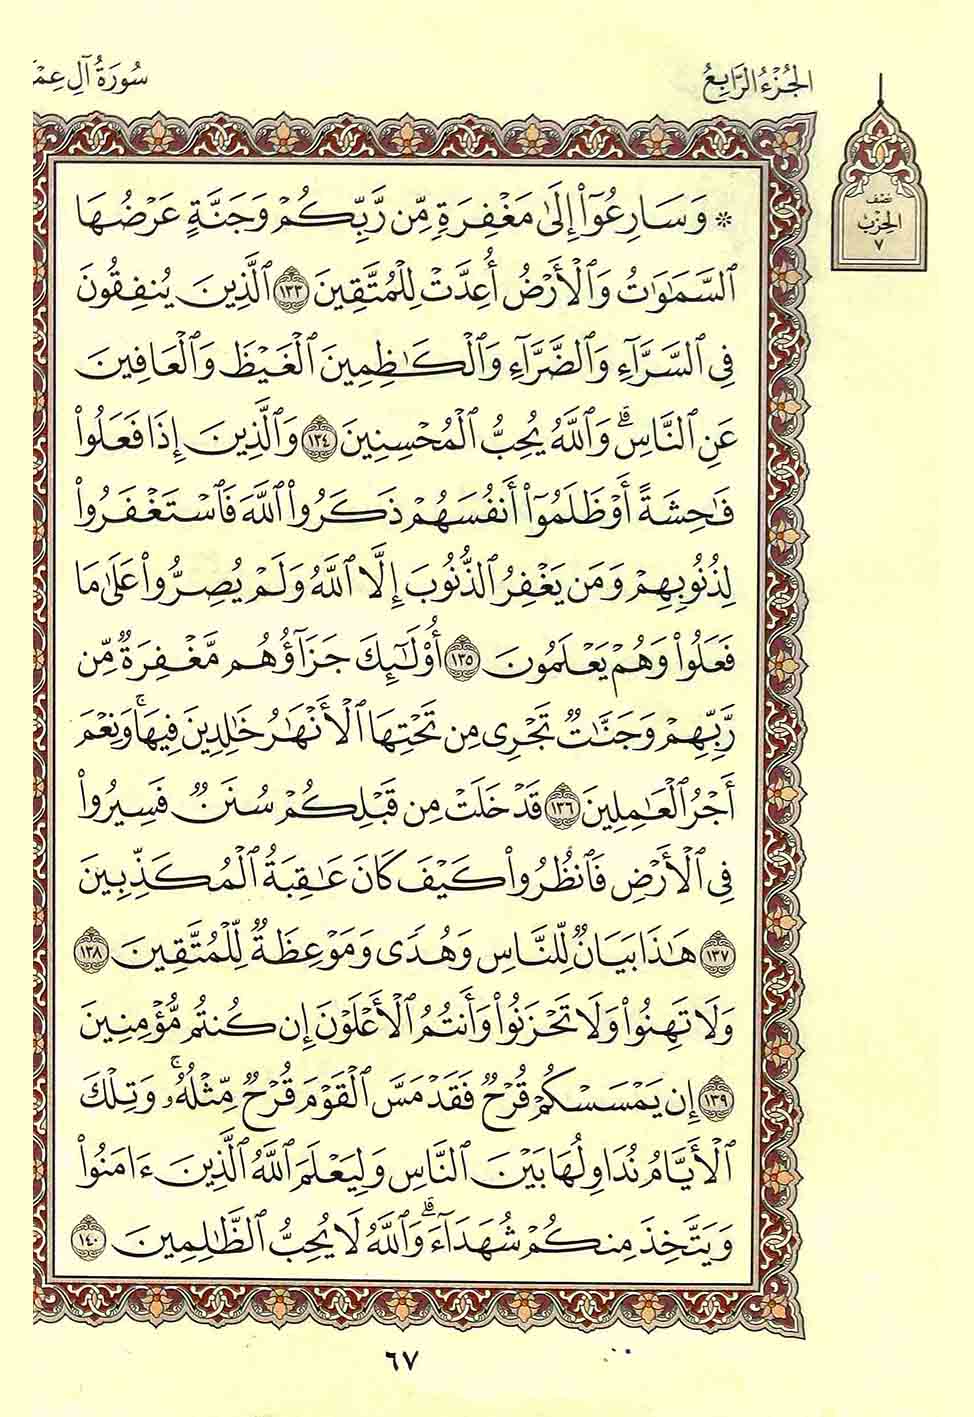 الجُزْءُ الرَّابِعُ
سُورَةُ آلِ عِمْ
نصْف
الحِزْب
٧
۞ وَسَارِعُوٓاْ إِلَىٰ مَغْفِرَةٖ مِّن رَّبِّكُمْ وَجَنَّةٍ عَرْضُهَا
ٱلسَّمَٰوَٰتُ وَٱلْأَرْضُ أُعِدَّتْ لِلْمُتَّقِينَ ١٣٣ ٱلَّذِينَ يُنفِقُونَ
فِي ٱلسَّرَّآءِ وَٱلضَّرَّآءِ وَٱلْكَٰظِمِينَ ٱلْغَيْظَ وَٱلْعَافِينَ
عَنِ ٱلنَّاسِۗ وَٱللَّهُ يُحِبُّ ٱلْمُحْسِنِينَ ١٣٤ وَٱلَّذِينَ إِذَا فَعَلُواْ
فَٰحِشَةً أَوْ ظَلَمُوٓاْ أَنفُسَهُمْ ذَكَرُواْ ٱللَّهَ فَٱسْتَغْفَرُواْ
لِذُنُوبِهِمْ وَمَن يَغْفِرُ ٱلذُّنُوبَ إِلَّا ٱللَّهُ وَلَمْ يُصِرُّواْ عَلَىٰ مَا
فَعَلُواْ وَهُمْ يَعْلَمُونَ ١٣٥ أُوْلَٰٓئِكَ جَزَآؤُهُم مَّغْفِرَةٞ مِّن
رَّبِّهِمْ وَجَنَّٰتٞ تَجْرِي مِن تَحْتِهَا ٱلْأَنْهَٰرُ خَٰلِدِينَ فِيهَاۚ وَنِعْمَ
أَجْرُ ٱلْعَٰمِلِينَ ١٣٦ قَدْ خَلَتْ مِن قَبْلِكُمْ سُنَنٞ فَسِيرُواْ
فِي ٱلْأَرْضِ فَٱنظُرُواْ كَيْفَ كَانَ عَٰقِبَةُ ٱلْمُكَذِّبِينَ
١٣٧ هَٰذَا بَيَانٞ لِّلنَّاسِ وَهُدٗى وَمَوْعِظَةٞ لِّلْمُتَّقِينَ ١٣٨
وَلَا تَهِنُواْ وَلَا تَحْزَنُواْ وَأَنتُمُ ٱلْأَعْلَوْنَ إِن كُنتُم مُّؤْمِنِينَ
١٣٩ إِن يَمْسَسْكُمْ قَرْحٞ فَقَدْ مَسَّ ٱلْقَوْمَ قَرْحٞ مِّثْلُهُۥۚ وَتِلْكَ
ٱلْأَيَّامُ نُدَاوِلُهَا بَيْنَ ٱلنَّاسِ وَلِيَعْلَمَ ٱللَّهُ ٱلَّذِينَ ءَامَنُواْ
وَيَتَّخِذَ مِنكُمْ شُهَدَآءَۗ وَٱللَّهُ لَا يُحِبُّ ٱلظَّٰلِمِينَ ١٤٠
٦٧